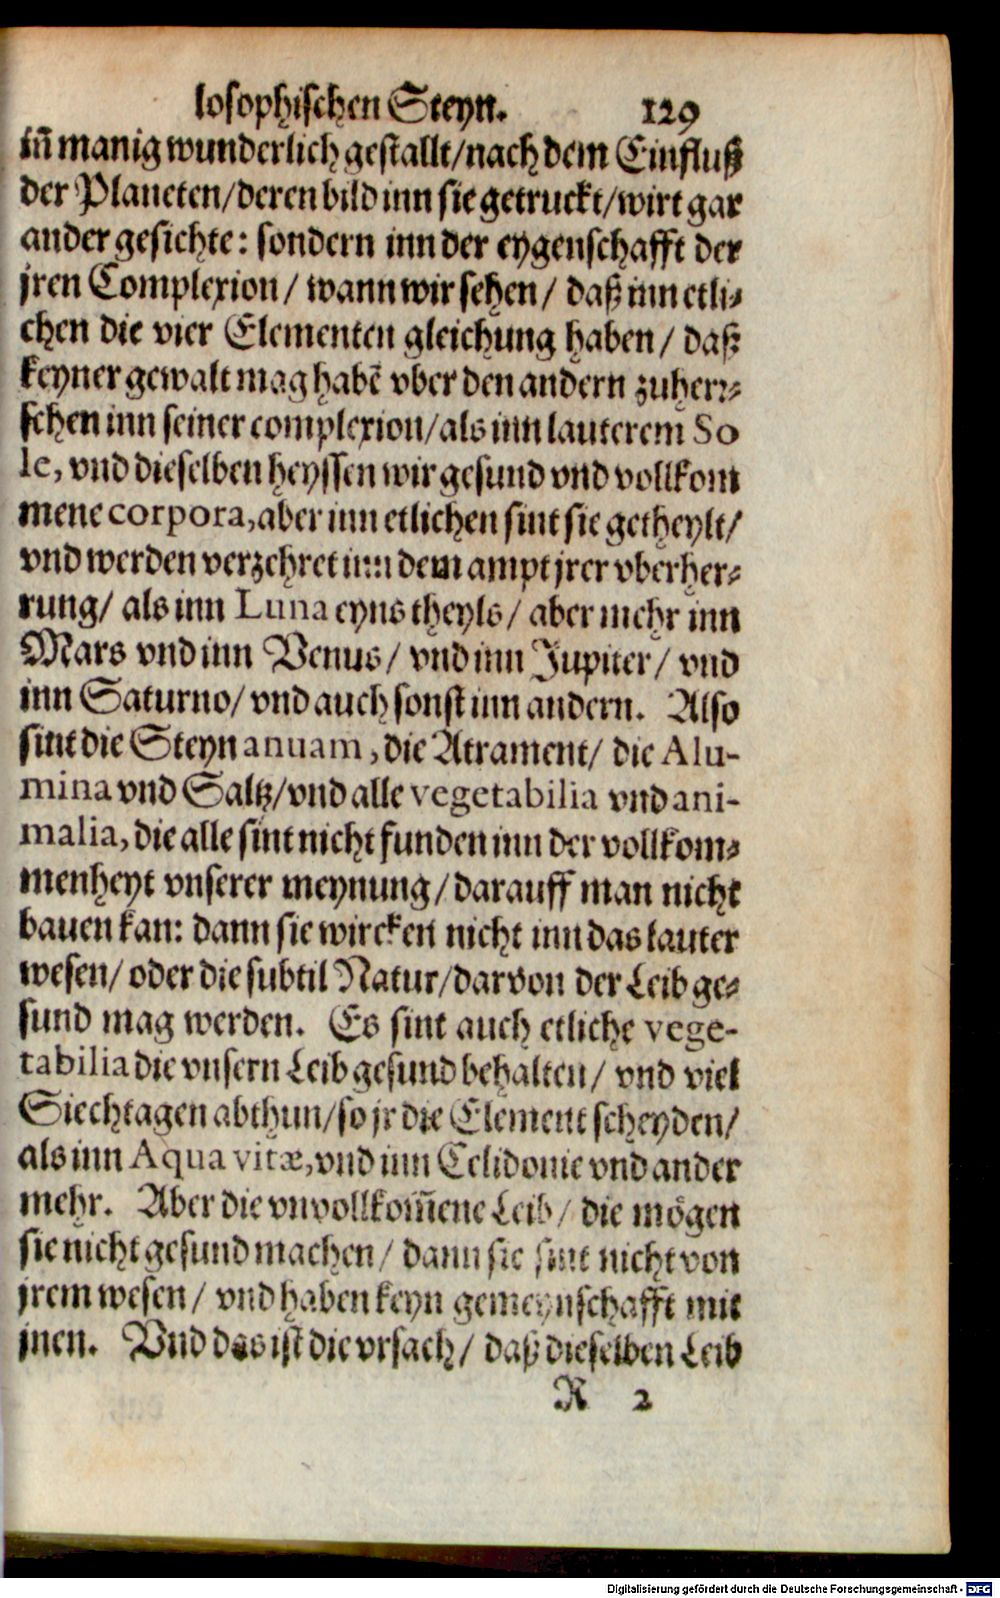 losophischen Steyn. 129
iñ manig wunderlich gestallt/nach dem Einfluß
der Planeten/deren bild inn sie getruckt/wirt gar
ander gesichte: sondern inn der eygenschafft der
jren Complexion/ wann wir sehen/ daß inn etli-
chen die vier Elementen gleichung haben/ daß
keyner gewalt mag habē vber den andern zuherr-
schen inn seiner complexion/als inn lauterem So
le, vnd dieselben heyssen wir gesund vnd vollkom
mene corpora, aber inn etlichen sint sie getheylt/
vnd werden verzehret inn dem ampt jrer vberher-
rung/ als inn Luna eyns theyls/ aber mehr inn
Mars vnd inn Venus/ vnd inn Jupiter/ vnd
inn Saturno/ vnd auch sonst inn andern. Also
sint die Steyn anuam, die Atrament/ die Alu-
mina vnd Saltz/vnd alle vegetabilia vnd ani-
malia, die alle sint nicht funden inn der vollkom-
menheyt vnserer meynung/darauff man nicht
bauen kan: dann sie wircken nicht inn das lauter
wesen/ oder die subtil Natur/darvon der Leib ge-
sund mag werden. Es sint auch etliche vege-
tabilia die vnsern Leib gesund behalten/ vnd viel
Siechtagen abthun/so jr die Element scheyden/
als inn Aqua vitæ, vnd inn Celidonie vnd ander
mehr. Aber die vnvollkom̃ene Leib/ die mögen
sie nicht gesund machen/ dann sie sint nicht von
jrem wesen/ vnd haben keyn gemeynschafft mit
jnen. Vnd das ist die vrsach/ daß dieselben Leib
R 2
Digitalisierung gefördert durch die Deutsche Forschungsgemeinschaft - DFG